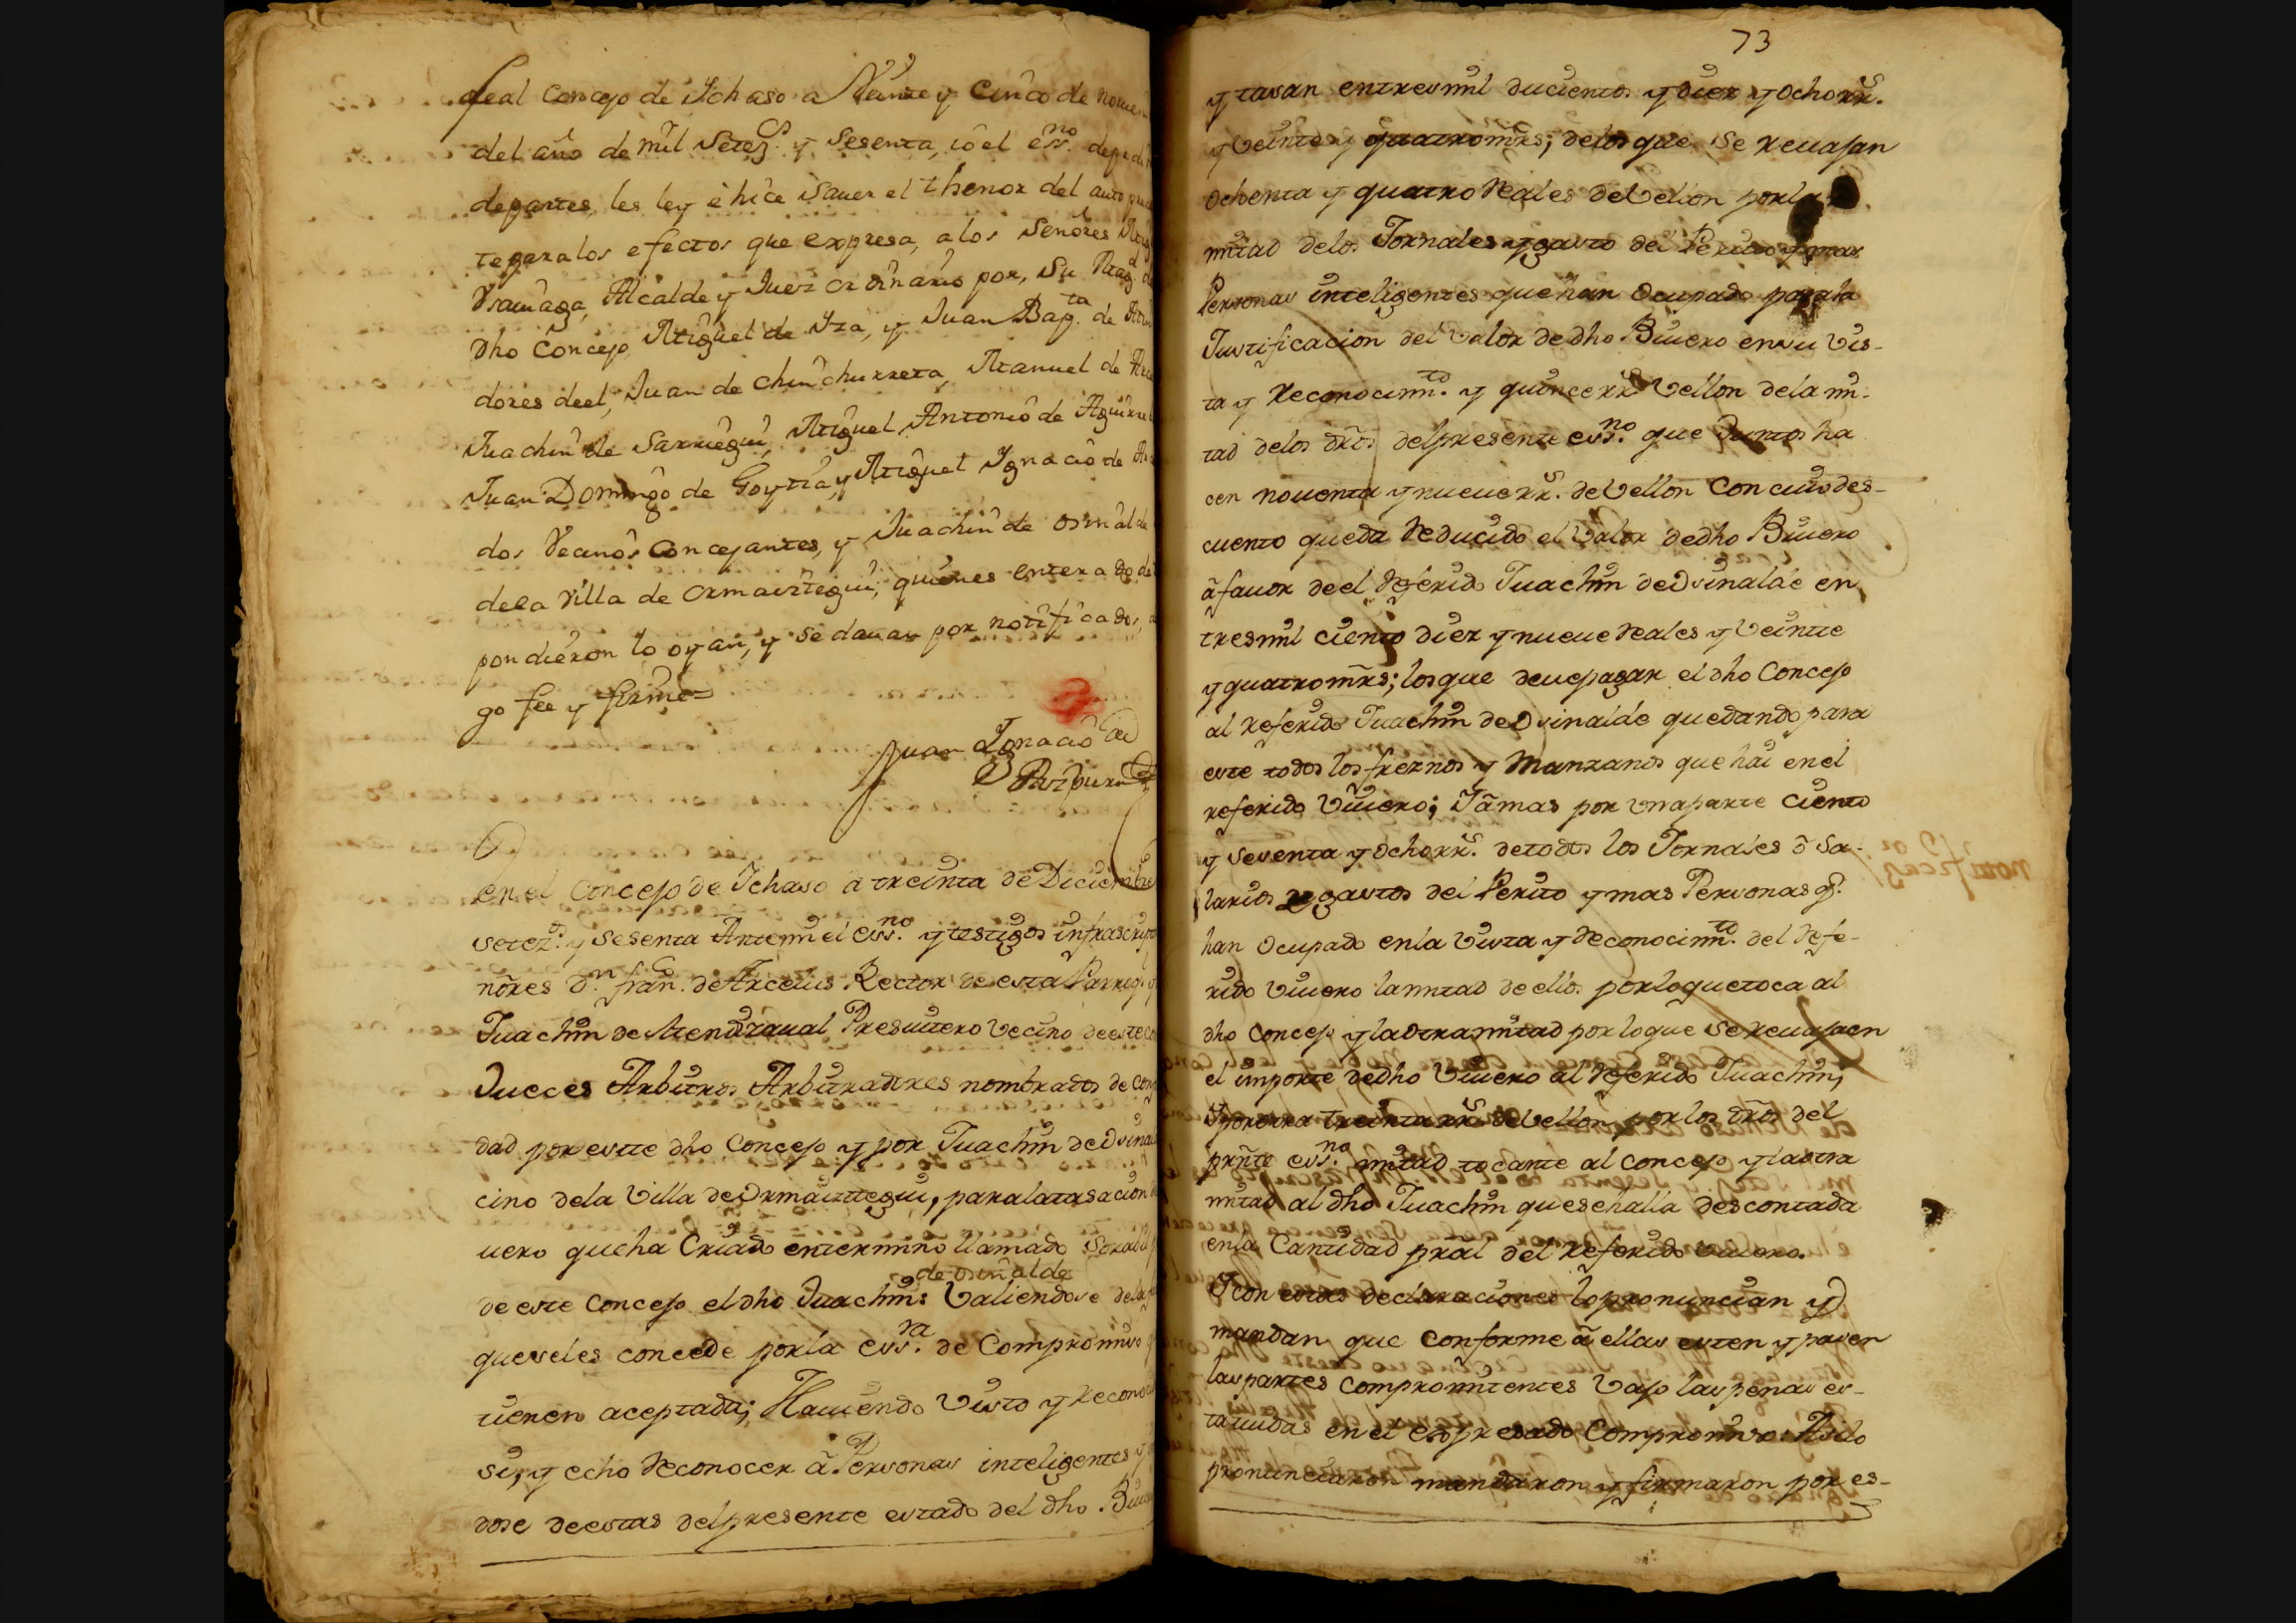 Leal Concejo de Ychaso a Veinte y Cinco de noue
del año de mil Setez.s y Sesenta, io el ess.no de pedi
de partes, les ley e hice Sauer el thenor del auto prece
te para los efectos que expresa, a los Señores
Alcalde y Juez ordinario por, Su Mag.d
dho Concejo Miguel de Yza, y Juan Bap.ta de
dores deel, Juan de Chinchurreta, Manuel de
Juachin de Sarriegui, Miguel Antonio de Aguirre
Juan Domingo de Goytia, y Miguel Ygnacio de
dos Vecinos Concejantes, y Juachin de osinalde
de la Villa de Ormaiztegui, quienes enterados de
pondieron lo oyan, y se dauan por notificados,
go fee y firme=
Juan Ignacio de
Aizpuru
en el Concejo de Ichaso a treinta de Diciembre
setez.s y sesenta Antemi el ess.no y testigos infrascriptos
ñores d.n fran.co de Arcelus Rector de esta Parroq.
Juachin de Mendizaual Presuitero Vecino de este co
Jueces Arbitros Arbitradores nombrados de con
dad por estte dho Concejo y por Juachin de Osinal
cino dela Villa de Ormaizttegui, para la tasacion
uero que ha Criado en termino llamado
de osinalde
de este Concejo el dho Juachin: Valiendose dela
que seles concede por la ess.ra de Compromiso
tienen aceptada; Hauiendo Visto y Recono
si, y echo Reconocer â Personas inteligentes y
dose de estas del presente estado del dho. Biue
73
y tasan en tres mil ducientos y diez y Ocho rr.s
y Veinte y quatro mrs; delos que se reuajan
Ochenta y quatro Reales de Vellon por la
mitad delos Jornales y gasto del Perito y mas
Personas inteligentes que han Ocupado para la
Justificacion del Valor de dho Biuero en su Vis-
ta y Reconocim.to y quince rr.s Vellon dela mi-
tad delos dr̃os del presente ess.no que Juntos ha
cen nouenta y nueue rr.s de Vellon con cuio des-
cuento queda Reducido el Valor de dho Biuero
â fauor de el Referido Juachin de Osinalde en
tres mil ciento diez y nueue Reales y Veintte
y quatro mr̃s; los que deue pagar el dho Concejo
al Referido Juachin de Osinalde quedando para
este todos los freznos y Manzanos que hai en el
referido Viuero; Y â mas por una parte Ciento
y sesenta y Ocho rr.s de todos los Jornales ô Sa-
larios y gastos del Perito y mas Personas q.e
han Ocupado en la Vista y Reconocim.to del Refe-
rido Viuero la mitad de ellos por lo que toca al
dho Concejo y la otra mitad por lo que se reuaja en
el importe de dho Viuero al Referido Juachin,
Y por otra treinta rr.s de Vellon por los dr̃os del
pr̃nte ess.no mitad tocante al concejo y la otra
mitad al dho Juachin que se halla descontada
en la Cantidad pr̃al del Referido Viuero.
Y con estas declaraciones lo pronuncian y
mandan que Conforme â ellas esten y pasen
las partes Compromitentes Vajo las penas es-
tatuidas en el expresado Compromiso: Asi lo
pronunciaron mandaron y firmaron por es-